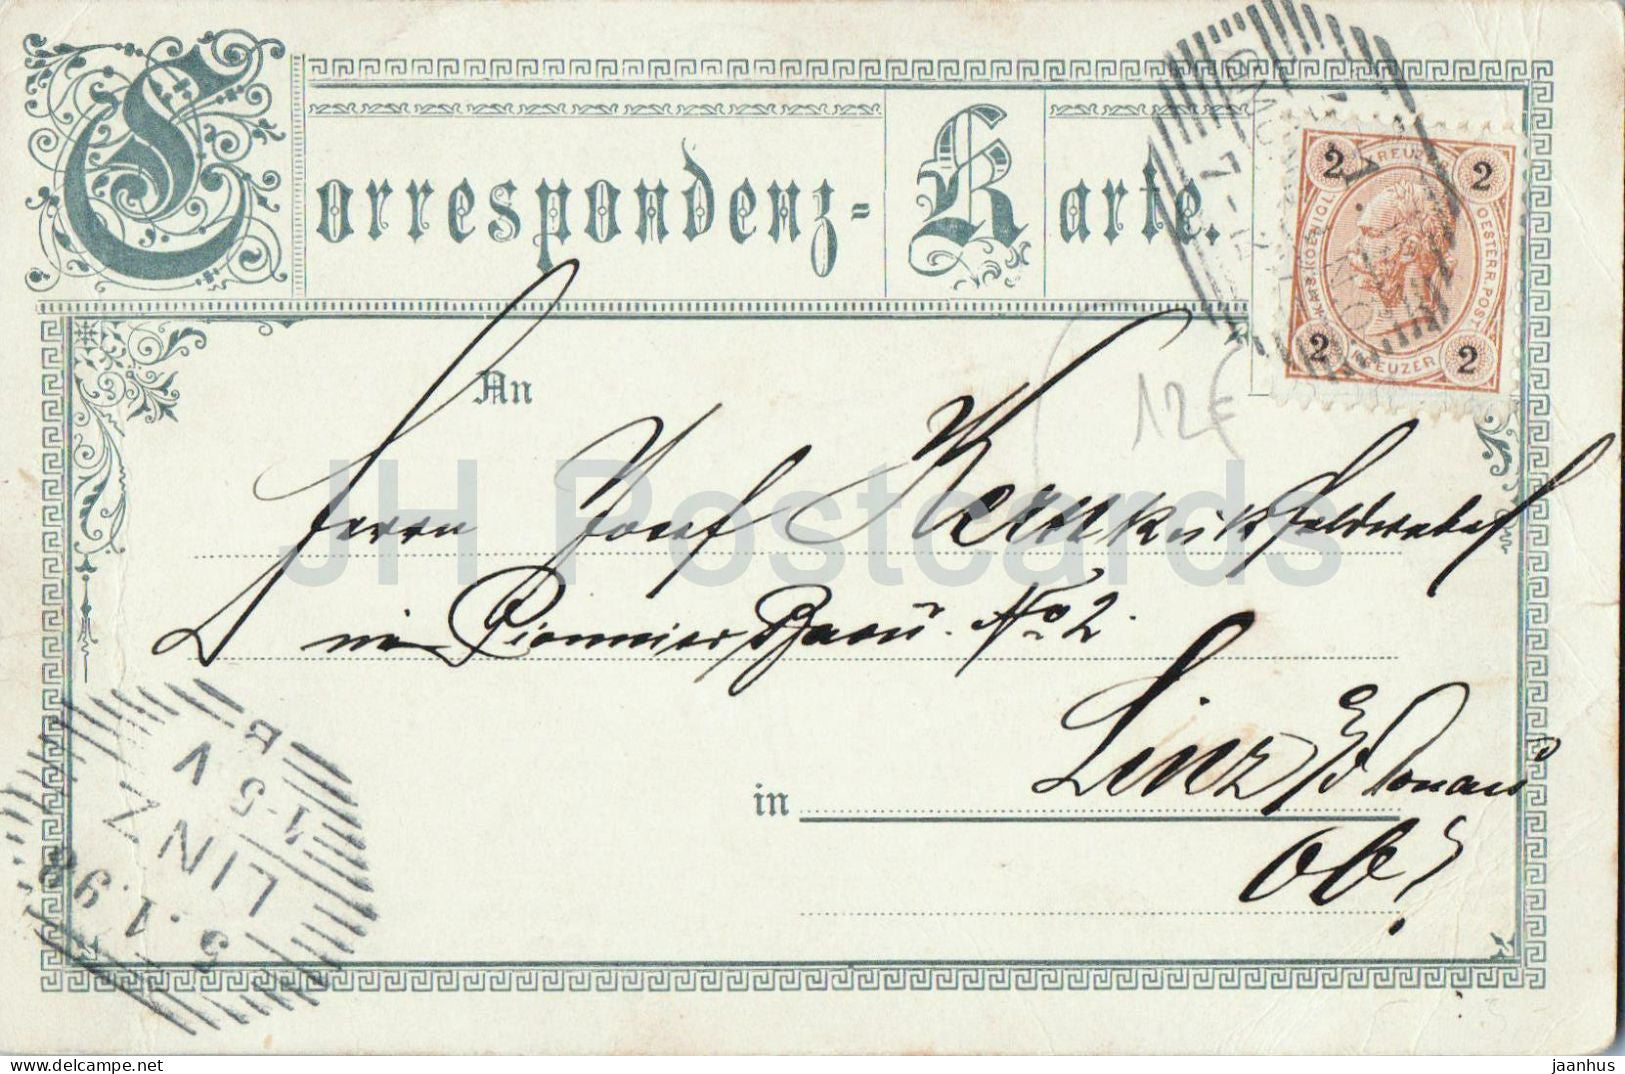 Correspondenz-Karte.
2 KREUZER 2
KAIS. KOENIGL. OESTERR. POST.
2 KREUZER 2
GMUNDEN
An
12€
Herrn Josef
im Pionnier Baon. No 2.
in Linz a/d Donau
Ob.
LINZ
5.1.98
1-5 V
B
JH Postcards
delcampe.net
jaanhus